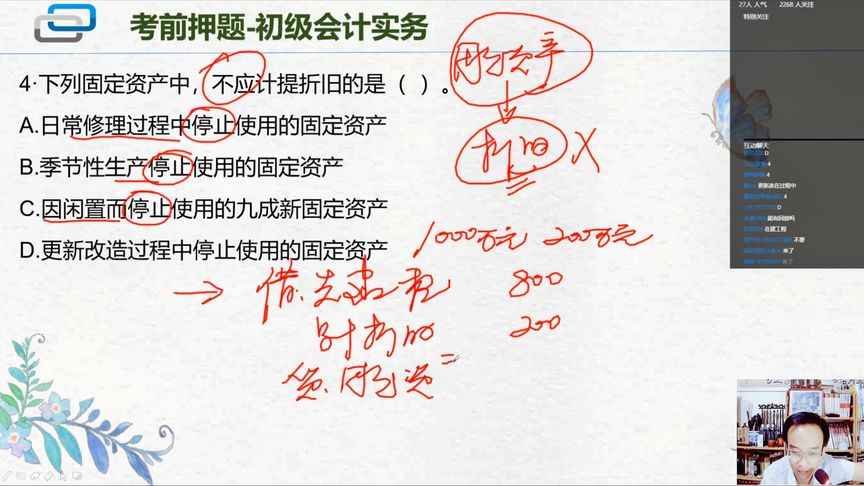 考前押题-初级会计实务
4·下列固定资产中，不应计提折旧的是（ ）。
A.日常修理过程中停止使用的固定资产
B.季节性生产停止使用的固定资产
C.因闲置而停止使用的九成新固定资产
D.更新改造过程中停止使用的固定资产
固定资产
折旧 X
1000万元 200万元
借:在建工程 800
累计折旧 200
贷:固定资
27人 人气 2268 人关注
特别关注
互动聊天
D
4
4
更新改在过程中
4
D
能有回放吗
在建工程
不要
来了
来了